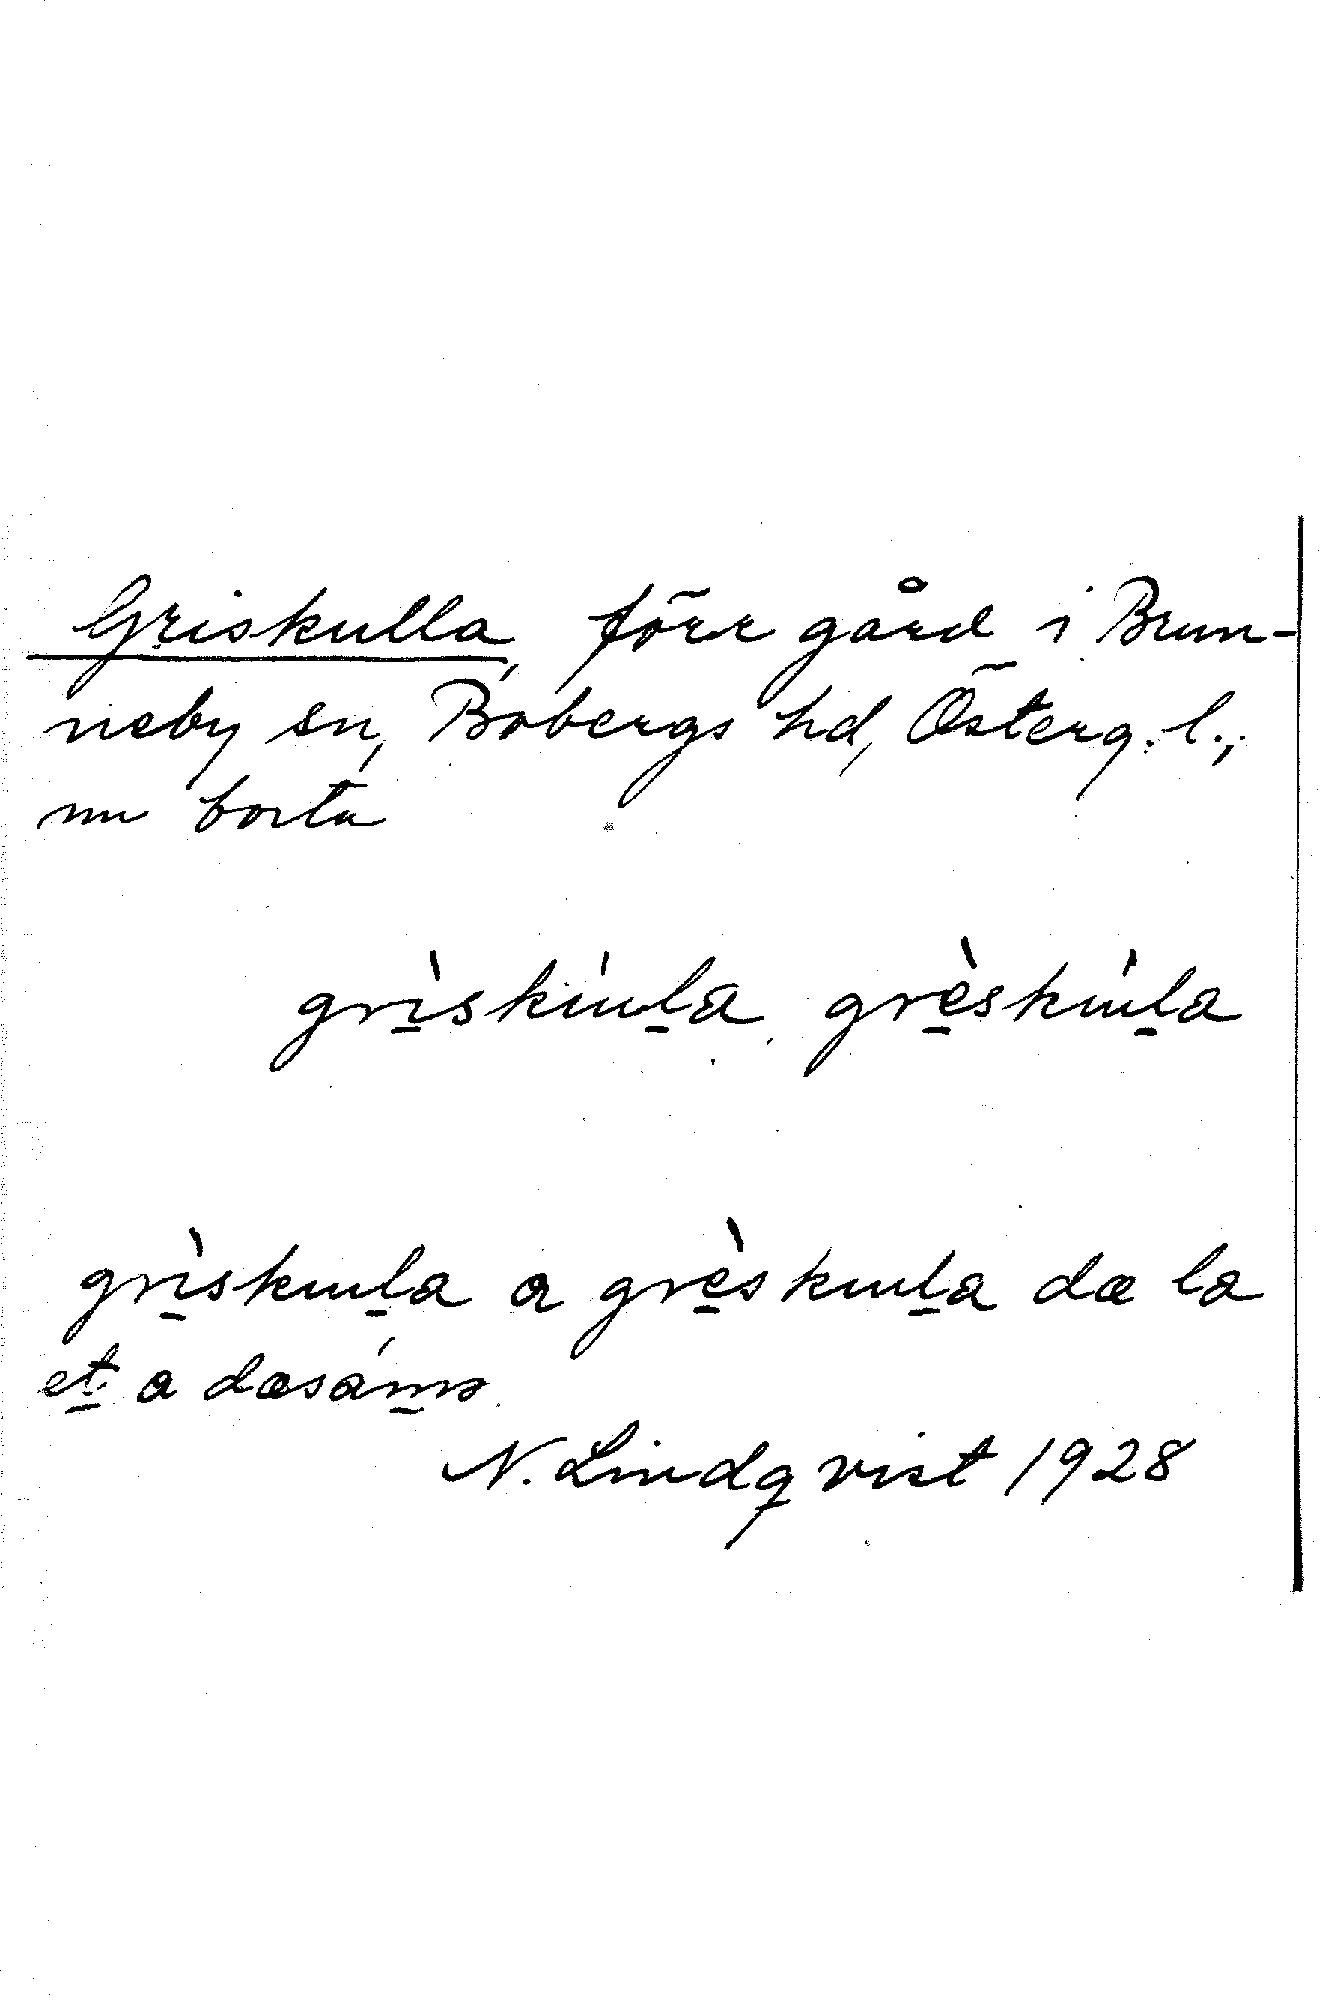 Griskulla, förr gård i Brun-
neby sn, Bobergs hd, Österg. l.,
nu borta
grı̀skúla, grèskúla
grı̀skula a grèskula dæ la
et a dæsáma
N. Lindqvist 1928